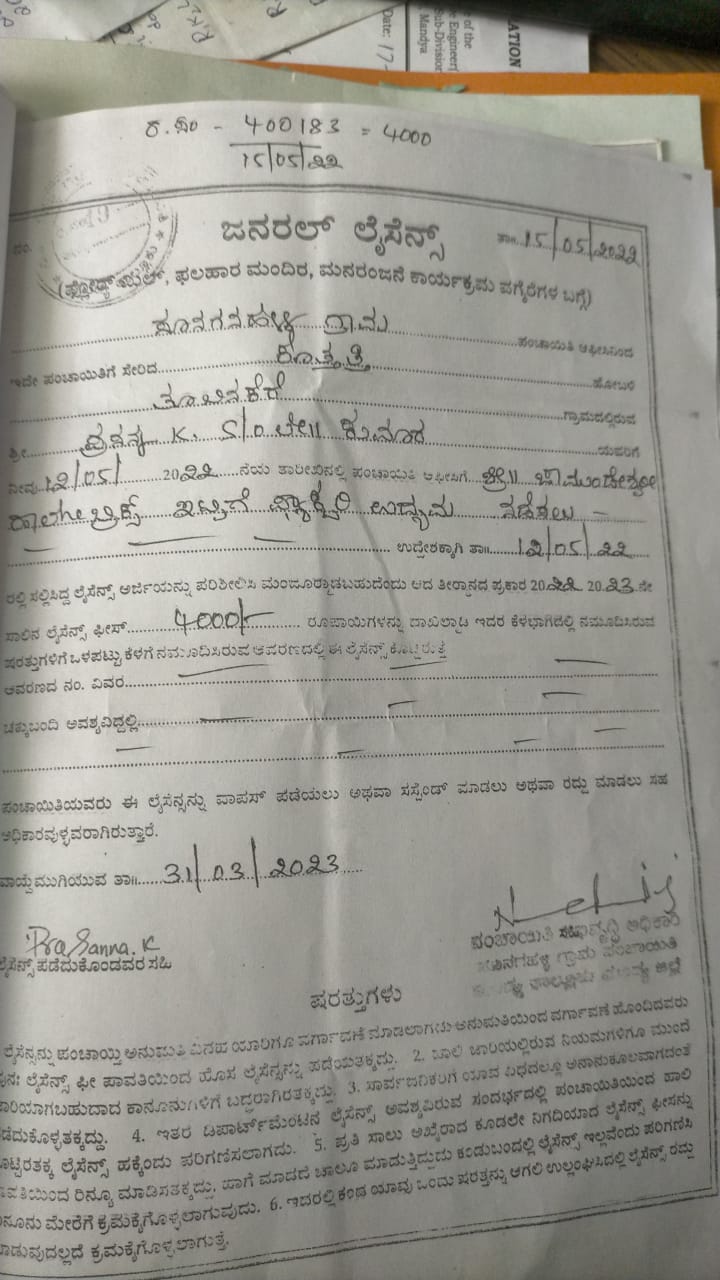 Date: 17-
of the
Engineer(
Sub-Division
Mandya
ATION
ರ.ನಂ - 400183 = 4000
15/05/22
ನಂ.
ಜನರಲ್ ಲೈಸೆನ್ಸ್
ತಾ॥ 15/05/2022
ಫಲಹಾರ ಮಂದಿರ, ಮನರಂಜನೆ ಕಾರ್ಯಕ್ರಮ ವಗೈರೆಗಳ ಬಗ್ಗೆ)
ಗ್ರಾಮ ಪಂಚಾಯಿತಿ ಆಫೀಸಿನಿಂದ
ಇದೇ ಪಂಚಾಯಿತಿಗೆ ಸೇರಿದ ಕೊತ್ತತ್ತಿ ಹೋಬಳಿ
ತೂಬಿನಕೆರೆ ಗ್ರಾಮದಲ್ಲಿರುವ
ಶ್ರೀ ಪ್ರಸನ್ನ K. S/o ಲೇ॥ ಕುಮಾರ ಯವರಿಗೆ
ನೀವು 12/05/ 2022 ನೆಯ ತಾರೀಖಿನಲ್ಲಿ ಪಂಚಾಯಿತಿ ಆಫೀಸಿಗೆ ಶ್ರೀ॥ ಚಾಮುಂಡೇಶ್ವರೀ
ಬ್ರಿಕ್ಸ್ ಇಟ್ಟಿಗೆ ಫ್ಯಾಕ್ಟರಿ ಉದ್ಯಮ ನಡೆಸಲು -
ಉದ್ದೇಶಕ್ಕಾಗಿ ತಾ॥ 12/05/22
ರಲ್ಲಿ ಸಲ್ಲಿಸಿದ್ದ ಲೈಸೆನ್ಸ್ ಅರ್ಜಿಯನ್ನು ಪರಿಶೀಲಿಸಿ ಮಂಜೂರ್ಮಾಡಬಹುದೆಂದು ಆದ ತೀರ್ಮಾನದ ಪ್ರಕಾರ 2022 2023 ನೇ
ಸಾಲಿನ ಲೈಸೆನ್ಸ್ ಫೀಸ್ 4000/- ರೂಪಾಯಿಗಳನ್ನು ದಾಖಲ್ಮಾಡಿ ಇದರ ಕೆಳಭಾಗದಲ್ಲಿ ನಮೂದಿಸಿರುವ
ಷರತ್ತುಗಳಿಗೆ ಒಳಪಟ್ಟು ಕೆಳಗೆ ನಮೂದಿಸಿರುವ ಆವರಣದಲ್ಲಿ ಈ ಲೈಸೆನ್ಸ್ ಕೊಟ್ಟಿರುತ್ತೆ
ಆವರಣದ ನಂ. ವಿವರ
ಚಕ್ಕುಬಂದಿ ಅವಶ್ಯವಿದ್ದಲ್ಲಿ
ಪಂಚಾಯಿತಿಯವರು ಈ ಲೈಸೆನ್ಸನ್ನು ವಾಪಸ್ ಪಡೆಯಲು ಅಥವಾ ಸಸ್ಪೆಂಡ್ ಮಾಡಲು ಅಥವಾ ರದ್ದು ಮಾಡಲು ಸಹ
ಅಧಿಕಾರವುಳ್ಳವರಾಗಿರುತ್ತಾರೆ.
ವಾಯ್ದೆ ಮುಗಿಯುವ ತಾ॥ 31/03/2023
Prasanna.K
ಲೈಸೆನ್ಸ್ ಪಡೆದುಕೊಂಡವರ ಸಹಿ
ಪಂಚಾಯಿತಿ ಅಭಿವೃದ್ಧಿ ಅಧಿಕಾರಿ
ಗ್ರಾಮ ಪಂಚಾಯಿತಿ
ಷರತ್ತುಗಳು
ಲೈಸೆನ್ಸನ್ನು ಪಂಚಾಯ್ತಿ ಅನುಮತಿ ವಿನಹ ಯಾರಿಗೂ ವರ್ಗಾವಣೆ ಮಾಡಲಾಗದು ಅನುಮತಿಯಿಂದ ವರ್ಗಾವಣೆ ಹೊಂದಿದವರು
ಪುನಃ ಲೈಸೆನ್ಸ್ ಫೀ ಪಾವತಿಯಿಂದ ಹೊಸ ಲೈಸೆನ್ಸನ್ನು ಪಡೆಯತಕ್ಕದ್ದು. 2. ಹಾಲಿ ಜಾರಿಯಲ್ಲಿರುವ ನಿಯಮಗಳಿಗೂ ಮುಂದೆ
ಜಾರಿಯಾಗಬಹುದಾದ ಕಾನೂನುಗಳಿಗೆ ಬದ್ಧರಾಗಿರತಕ್ಕದ್ದು. 3. ಸಾರ್ವಜನಿಕರಿಗೆ ಯಾವ ವಿಧದಲ್ಲೂ ಅನಾನುಕೂಲವಾಗದಂತೆ
ನಡೆದುಕೊಳ್ಳತಕ್ಕದ್ದು. 4. ಇತರ ಡಿಪಾರ್ಟ್‌ಮೆಂಟಿನ ಲೈಸೆನ್ಸ್ ಅವಶ್ಯವಿರುವ ಸಂದರ್ಭದಲ್ಲಿ ಪಂಚಾಯಿತಿಯಿಂದ ಹಾಲಿ
ಕೊಟ್ಟಿರತಕ್ಕ ಲೈಸೆನ್ಸ್ ಹಕ್ಕೆಂದು ಪರಿಗಣಿಸಲಾಗದು. 5. ಪ್ರತಿ ಸಾಲು ಅಖೈರಾದ ಕೂಡಲೇ ನಿಗದಿಯಾದ ಲೈಸೆನ್ಸ್ ಫೀಸನ್ನು
ಪಾವತಿಯಿಂದ ರಿನ್ಯೂ ಮಾಡಿಸತಕ್ಕದ್ದು. ಹಾಗೆ ಮಾಡದೆ ಚಾಲೂ ಮಾಡುತ್ತಿದ್ದುದು ಕಂಡುಬಂದಲ್ಲಿ ಲೈಸೆನ್ಸ್ ಇಲ್ಲವೆಂದು ಪರಿಗಣಿಸಿ
ಕಾನೂನು ಮೇರೆಗೆ ಕ್ರಮಕೈಗೊಳ್ಳಲಾಗುವುದು. 6. ಇದರಲ್ಲಿ ಕಂಡ ಯಾವ ಒಂದು ಷರತ್ತನ್ನು ಆಗಲಿ ಉಲ್ಲಂಘಿಸಿದಲ್ಲಿ ಲೈಸೆನ್ಸ್ ರದ್ದು
ಮಾಡುವುದಲ್ಲದೆ ಕ್ರಮಕೈಗೊಳ್ಳಲಾಗುತ್ತೆ.